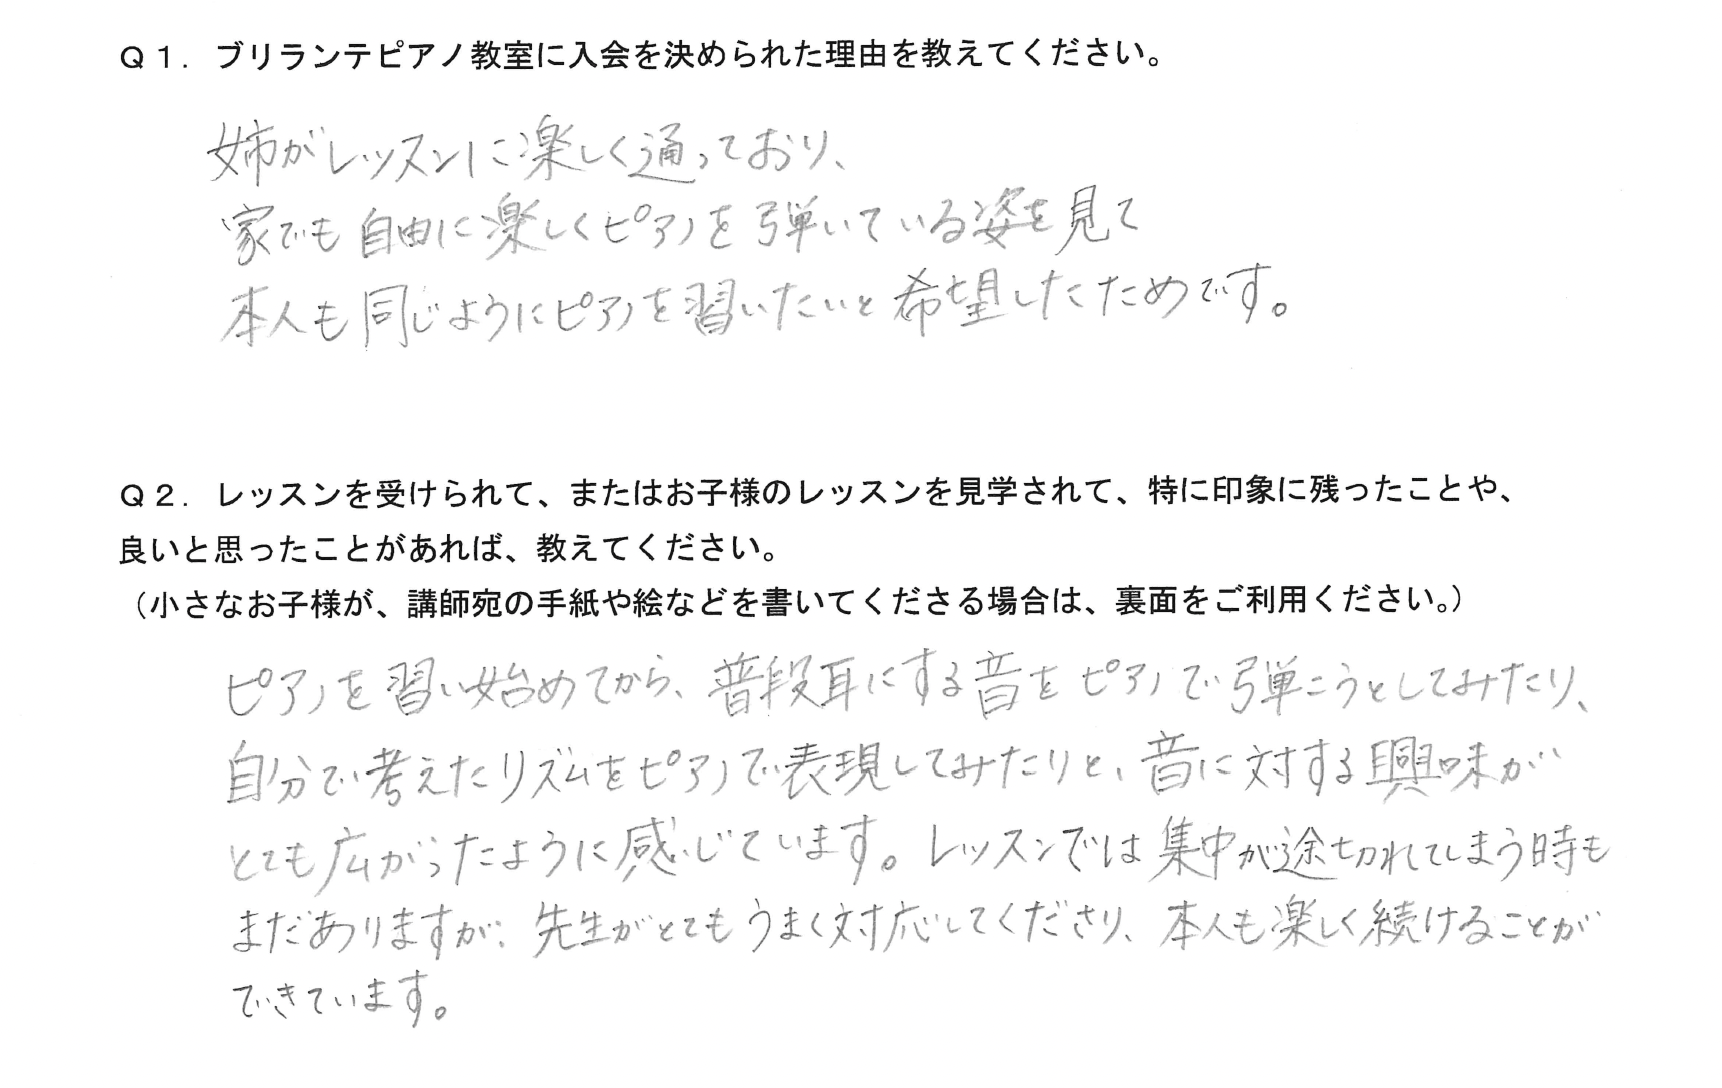 Ｑ１．ブリランテピアノ教室に入会を決められた理由を教えてください。
姉がレッスンに楽しく通っており、
家でも自由に楽しくピアノを弾いている姿を見て
本人も同じようにピアノを習いたいと希望したためです。
Ｑ２．レッスンを受けられて、またはお子様のレッスンを見学されて、特に印象に残ったことや、
良いと思ったことがあれば、教えてください。
（小さなお子様が、講師宛の手紙や絵などを書いてくださる場合は、裏面をご利用ください。）
ピアノを習い始めてから、普段耳にする音をピアノで弾こうとしてみたり、
自分で考えたリズムをピアノで表現してみたりと、音に対する興味が
とても広がったように感じています。レッスンでは集中が途切れてしまう時も
まだありますが、先生がとてもうまく対応してくださり、本人も楽しく続けることが
できています。